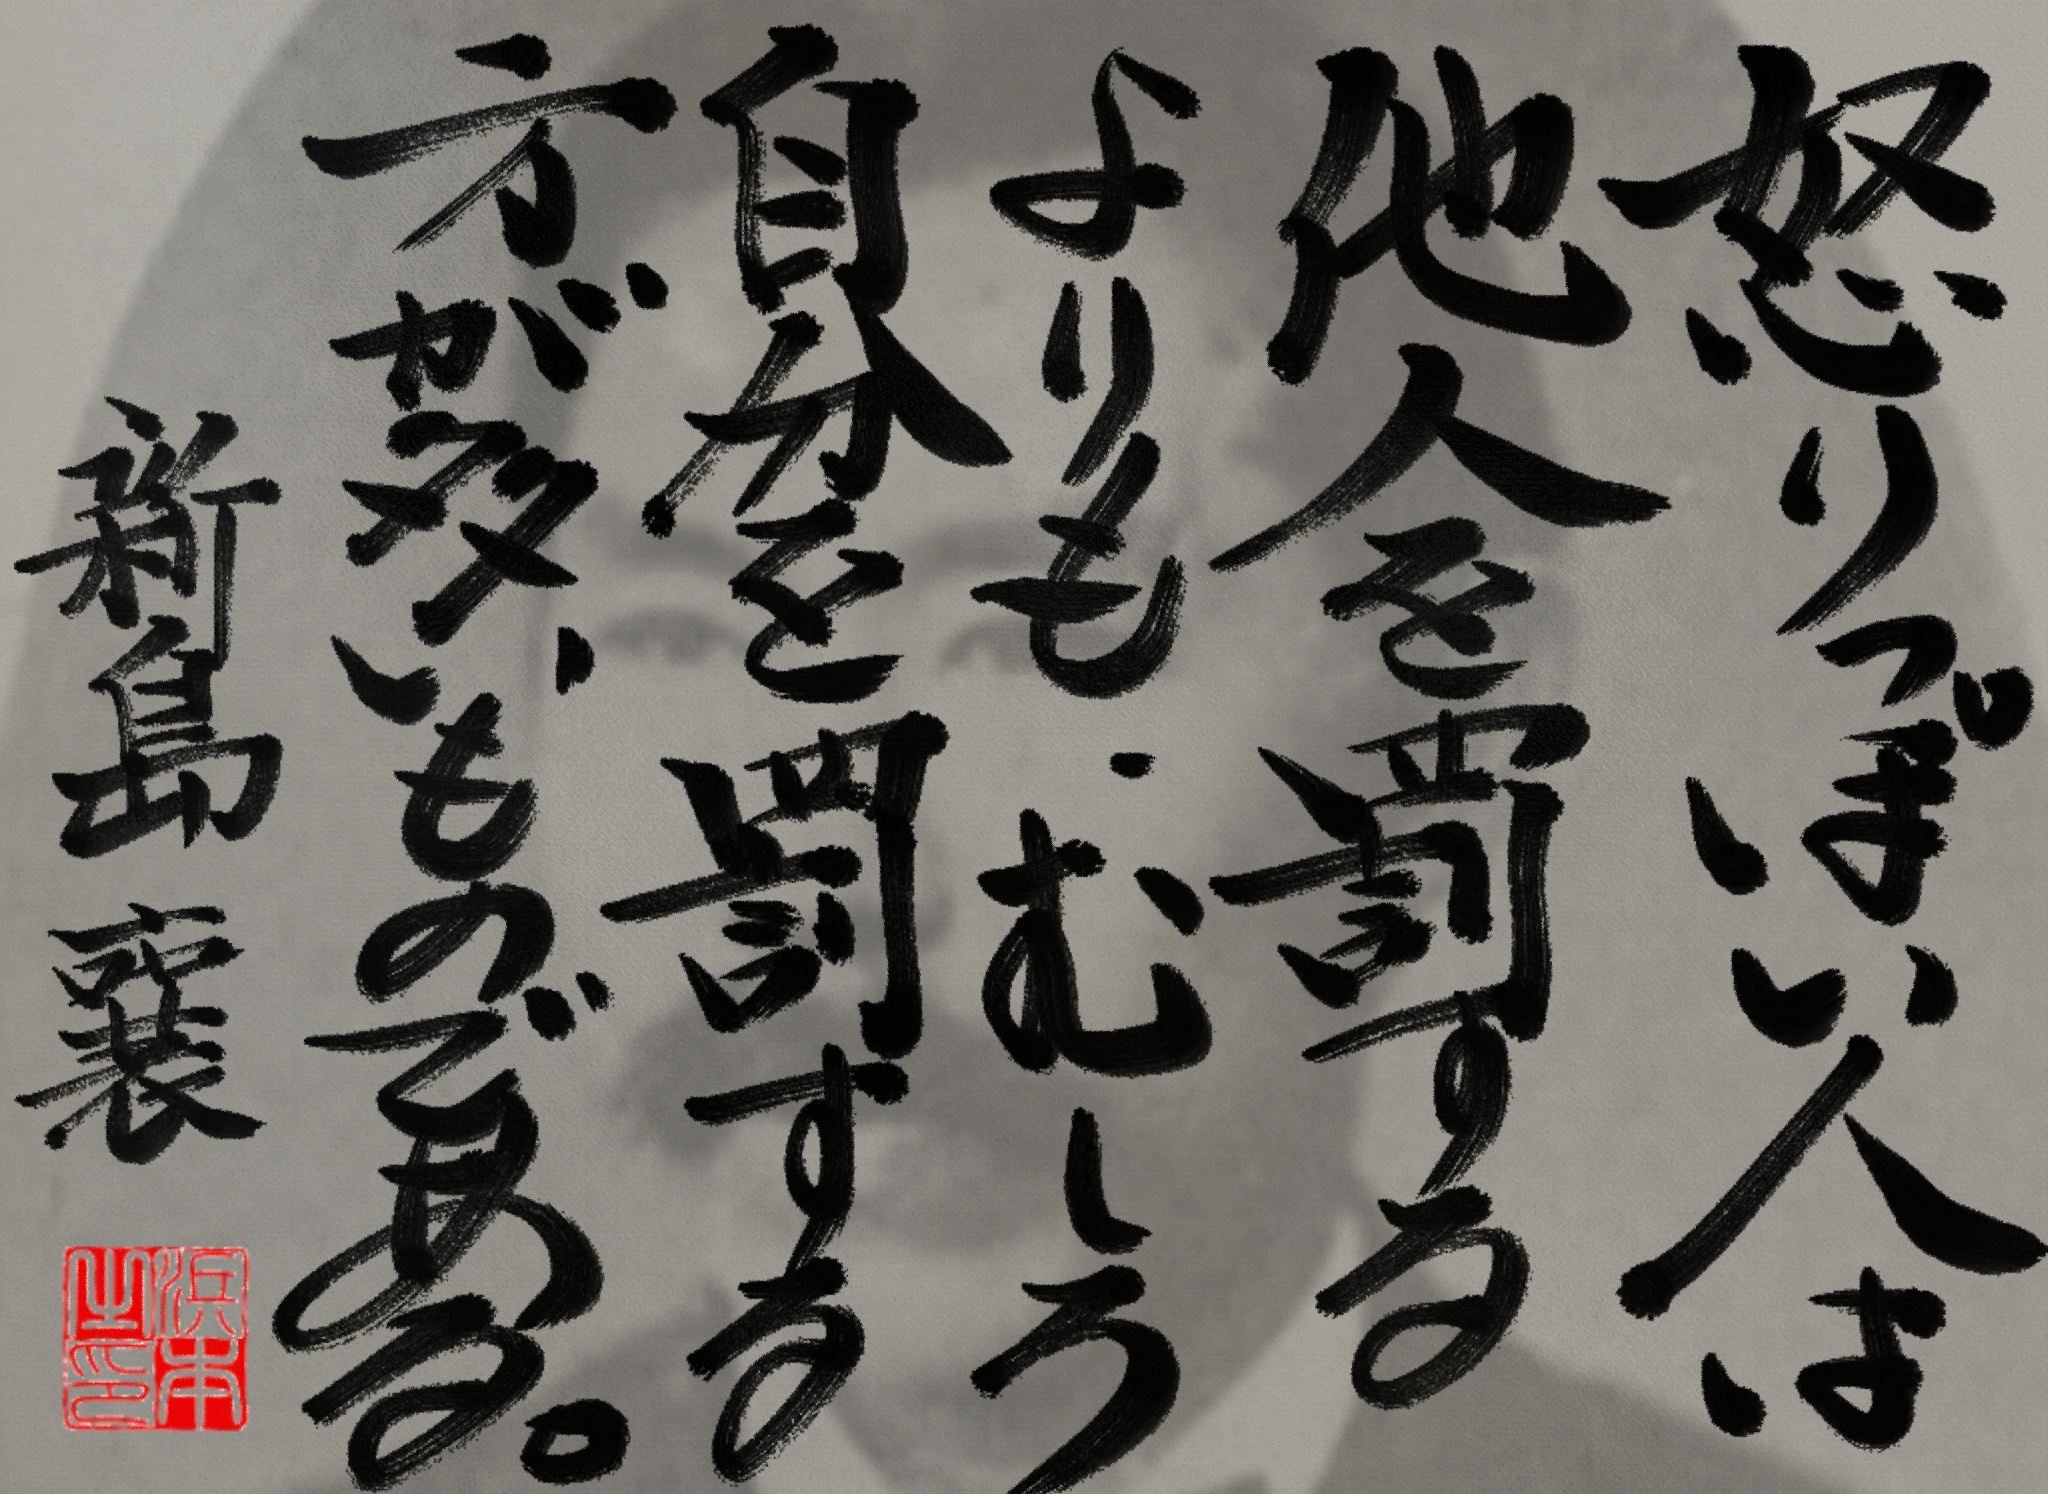 怒りっぽい人は
他人を罰する
よりも むしろ
自分を罰する
方が多いものである。
新島 襄
浜本之印